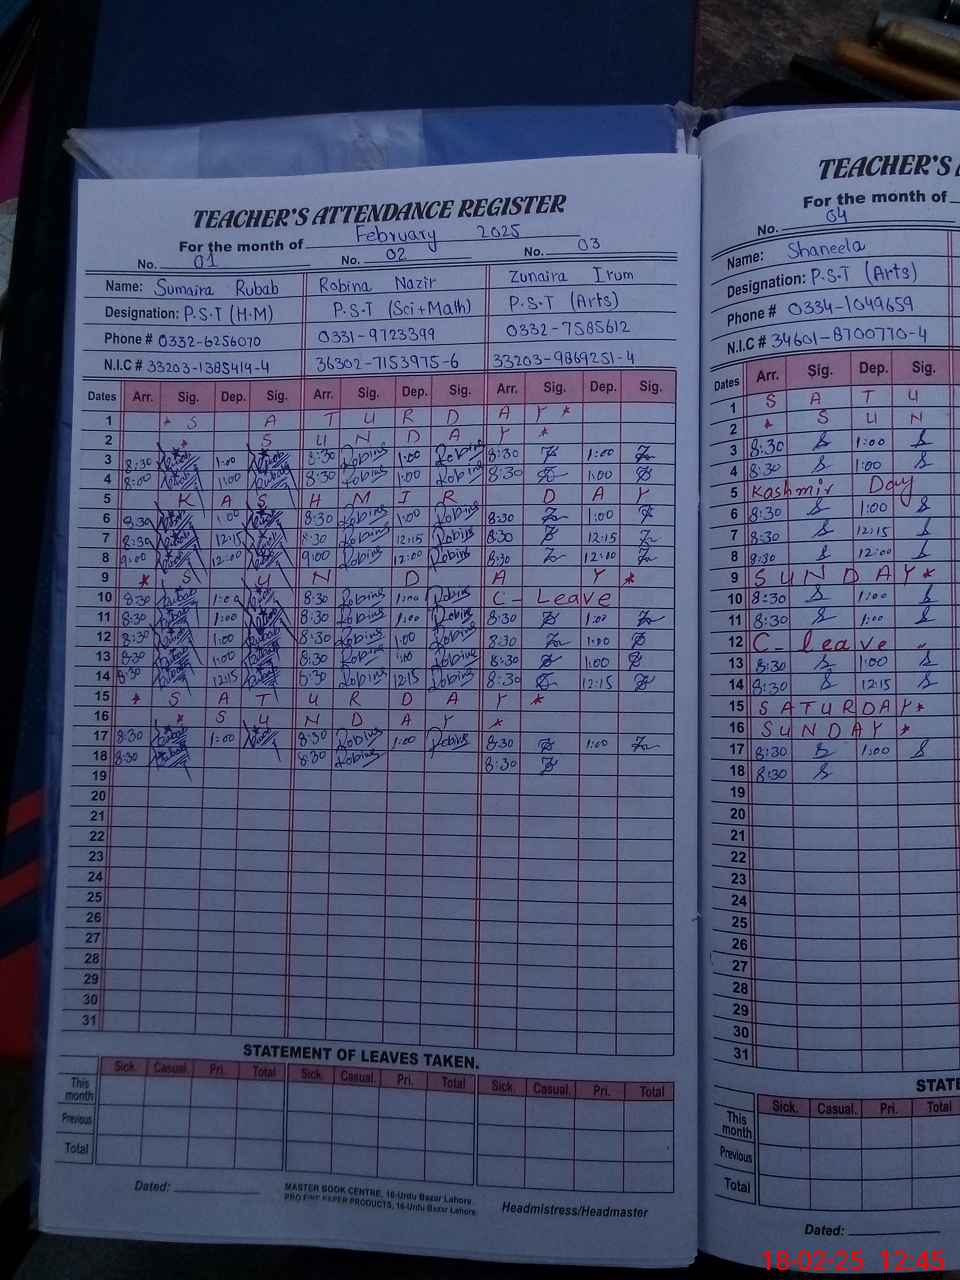 TEACHER'S ATTENDANCE REGISTER
For the month of February 2025
No. 01 No. 02 No. 03
Name: Sumaira Rubab Robina Nazir Zunaira Irum
Designation: P.S.T (H.M) P.S.T (Sci+Math) P.S.T (Arts)
Phone # 0332-6256070 0331-9723399 0332-7585612
N.I.C # 33203-1385419-4 36302-7153975-6 33203-9869251-4
Dates Arr. Sig. Dep. Sig. Arr. Sig. Dep. Sig. Arr. Sig. Dep. Sig.
1 * S A T U R D A Y *
2 * S U N D A Y *
3 8:30 Rubab 1:00 Rubab 8:30 Robina 1:00 Robina 8:30 1:00
4 8:00 Rubab 1:00 Rubab 8:30 Robina 1:00 Robina 8:30 1:00
5 K A S H M I R D A Y
6 8:30 Rubab 1:00 Rubab 8:30 Robina 1:00 Robina 8:30 1:00
7 8:30 Rubab 12:15 Rubab 8:30 Robina 12:15 Robina 8:30 12:15
8 9:00 Rubab 12:00 Rubab 9:00 Robina 12:00 Robina 8:30 12:00
9 * S U N D A Y *
10 8:30 Rubab 1:00 Rubab 8:30 Robina 1:00 Robina C- Leave
11 8:30 Rubab 1:00 Rubab 8:30 Robina 1:00 Robina 8:30 1:00
12 8:30 Rubab 1:00 Rubab 8:30 Robina 1:00 Robina 8:30 1:00
13 8:30 Rubab 1:00 Rubab 8:30 Robina 1:00 Robina 8:30 1:00
14 8:30 Rubab 12:15 Rubab 8:30 Robina 12:15 Robina 8:30 12:15
15 * S A T U R D A Y *
16 * S U N D A Y *
17 8:30 Rubab 1:00 Rubab 8:30 Robina 1:00 Robina 8:30 1:00
18 8:30 Rubab 8:30 Robina 8:30
19
20
21
22
23
24
25
26
27
28
29
30
31
STATEMENT OF LEAVES TAKEN.
Sick. Casual. Pri. Total Sick. Casual. Pri. Total Sick. Casual. Pri. Total
This month
Previous
Total
Dated:
MASTER BOOK CENTRE, 16-Urdu Bazar Lahore
PRO FINE PAPER PRODUCTS, 16-Urdu Bazar Lahore
Headmistress/Headmaster
TEACHER'S
For the month of
No. 04
Name: Shaneela
Designation: P.S.T (Arts)
Phone # 0334-1049659
N.I.C # 34601-8700770-4
Dates Arr. Sig. Dep. Sig.
1 S A T U
2 * S U N
3 8:30 1:00
4 8:30 1:00
5 Kashmir Day
6 8:30 1:00
7 8:30 12:15
8 8:30 12:00
9 S U N D A Y *
10 8:30 1:00
11 8:30 1:00
12 C- leave
13 8:30 1:00
14 8:30 12:15
15 S A T U R D A Y *
16 S U N D A Y *
17 8:30 1:00
18 8:30
19
20
21
22
23
24
25
26
27
28
29
30
31
STATE
Sick. Casual. Pri. Total
This month
Previous
Total
Dated:
18-02-25 12:45